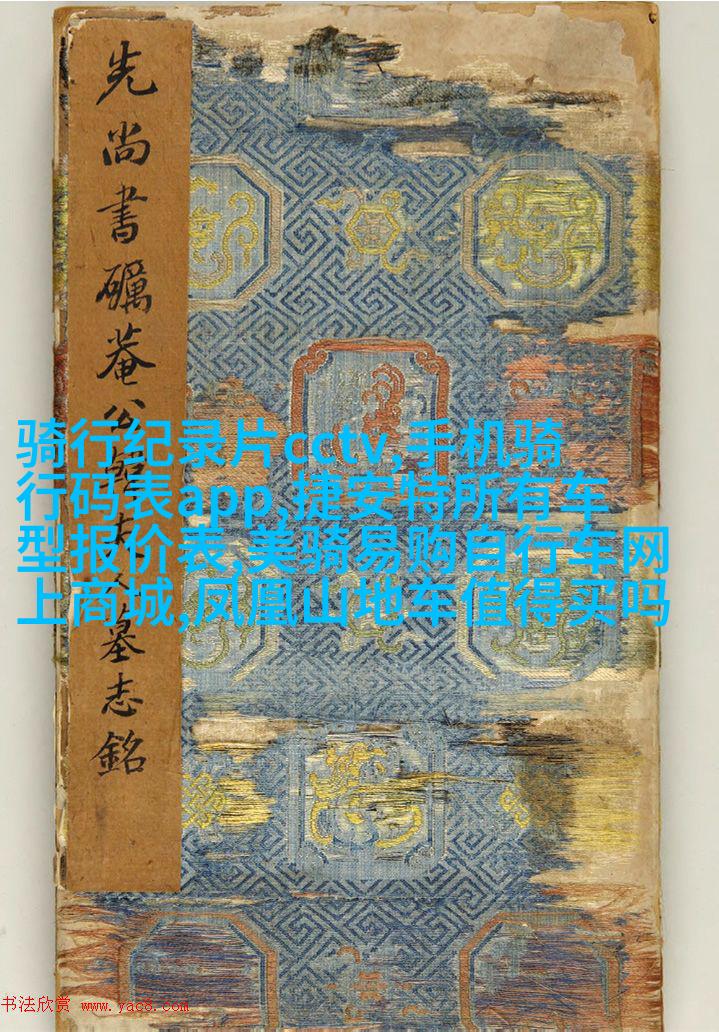 先尚書礪菴公
墓志銘
骑行纪录片cctv,手机骑
行码表app,捷安特所有车
型报价表,美骑易购自行车网
上商城,凤凰山地车值得买吗
书法欣赏 www.yac8.com